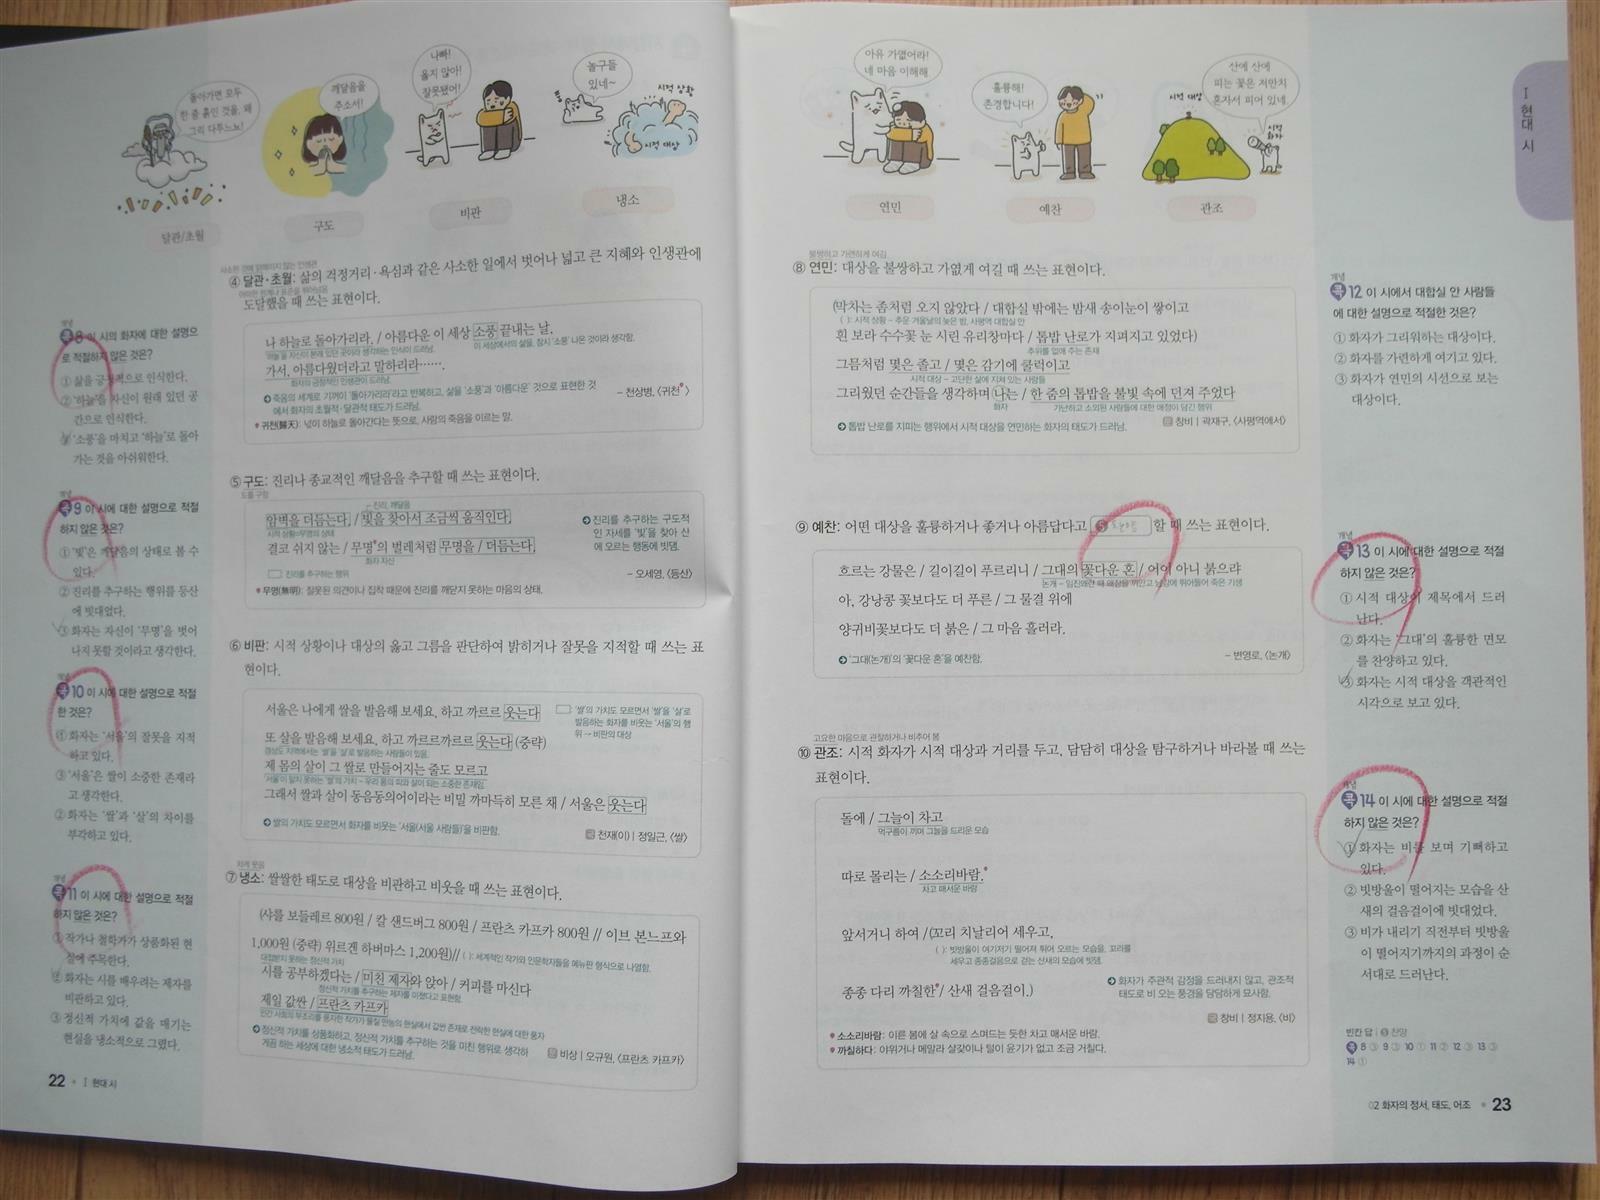 돌아가면 모두
한 줌 흙인 것을, 왜
그리 다투느뇨!
깨달음을
주소서!
나빠!
옳지 않아!
잘못됐어!
놀구들
있네~
시적 상황
시적 대상
달관/초월
구도
비판
냉소
④ 달관·초월: 삶의 걱정거리·욕심과 같은 사소한 일에서 벗어나 넓고 큰 지혜와 인생관에
도달했을 때 쓰는 표현이다.
나 하늘로 돌아가리라. / 아름다운 이 세상 소풍 끝내는 날,
'하늘'을 자신이 본래 있던 곳이라 생각하는 인식이 드러남.
이 세상에서의 삶을, 잠시 '소풍' 나온 것이라 생각함.
가서, 아름다웠더라고 말하리라……
화자의 긍정적인 인생관이 드러남.
죽음의 세계로 기꺼이 '돌아가리라'라고 반복하고, 삶을 '소풍'과 '아름다운' 것으로 표현한 것
에서 화자의 초월적·달관적 태도가 드러남.
- 천상병, 〈귀천〉
귀천(歸天): 넋이 하늘로 돌아간다는 뜻으로, 사람의 죽음을 이르는 말.
⑤ 구도: 진리나 종교적인 깨달음을 추구할 때 쓰는 표현이다.
도를 구함
진리, 깨달음
암벽을 더듬는다. / 빛을 찾아서 조금씩 움직인다.
시적 상황=무명의 상태
결코 쉬지 않는 / 무명의 벌레처럼 무명을 / 더듬는다.
화자 자신
: 진리를 추구하는 행위
진리를 추구하는 구도적
인 자세를 '빛'을 찾아 산
에 오르는 행동에 빗댐.
- 오세영, 〈등산〉
무명(無明): 잘못된 의견이나 집착 때문에 진리를 깨닫지 못하는 마음의 상태.
⑥ 비판: 시적 상황이나 대상의 옳고 그름을 판단하여 밝히거나 잘못을 지적할 때 쓰는 표
현이다.
서울은 나에게 쌀을 발음해 보세요, 하고 까르르 웃는다
또 살을 발음해 보세요, 하고 까르르까르르 웃는다 (중략)
경상도 지역에서는 '쌀'을 '살'로 발음하는 사람들이 있음.
제 몸의 살이 그 쌀로 만들어지는 줄도 모르고
'서울'이 알지 못하는 '쌀'의 가치 – 우리 몸의 피와 살이 되는 소중한 존재임.
그래서 쌀과 살이 동음동의어이라는 비밀 까마득히 모른 채 / 서울은 웃는다
: '쌀'의 가치도 모르면서 '쌀'을 '살'로
발음하는 화자를 비웃는 '서울'의 행
위 → 비판의 대상
쌀의 가치도 모르면서 화자를 비웃는 '서울(서울 사람들)'을 비판함.
천재(이) | 정일근, 〈쌀〉
차게 웃음
⑦ 냉소: 쌀쌀한 태도로 대상을 비판하고 비웃을 때 쓰는 표현이다.
(샤를 보들레르 800원 / 칼 샌드버그 800원 / 프란츠 카프카 800원 // 이브 본느프와
1,000원 (중략) 위르겐 하버마스 1,200원)// ( ): 세계적인 작가와 인문학자들을 메뉴판 형식으로 나열함.
대접받지 못하는 정신적 가치
시를 공부하겠다는 / 미친 제자와 앉아 / 커피를 마신다
정신적 가치를 추구하는 제자를 미쳤다고 표현함.
제일 값싼 / 프란츠 카프카
인간 사회의 부조리를 풍자한 작가가 물질 만능의 현실에서 값싼 존재로 전락한 현실에 대한 풍자
정신적 가치를 상품화하고, 정신적 가치를 추구하는 것을 미친 행위로 생각하
게끔 하는 세상에 대한 냉소적 태도가 드러남.
비상 | 오규원, 〈프란츠 카프카〉
개념
콕 8 이 시의 화자에 대한 설명으
로 적절하지 않은 것은?
① 삶을 긍정적으로 인식한다.
② '하늘'을 자신이 원래 있던 공
간으로 인식한다.
③ '소풍'을 마치고 '하늘'로 돌아
가는 것을 아쉬워한다.
개념
콕 9 이 시에 대한 설명으로 적절
하지 않은 것은?
① '빛'은 깨달음의 상태로 볼 수
있다.
② 진리를 추구하는 행위를 등산
에 빗대었다.
③ 화자는 자신이 '무명'을 벗어
나지 못할 것이라고 생각한다.
개념
콕 10 이 시에 대한 설명으로 적절
한 것은?
① 화자는 '서울'의 잘못을 지적
하고 있다.
③ '서울'은 쌀이 소중한 존재라
고 생각한다.
② 화자는 '쌀'과 '살'의 차이를
부각하고 있다.
개념
콕 11 이 시에 대한 설명으로 적절
하지 않은 것은?
① 작가나 철학자가 상품화된 현
실에 주목한다.
② 화자는 시를 배우려는 제자를
비판하고 있다.
③ 정신적 가치에 값을 매기는
현실을 냉소적으로 그렸다.
22 • Ⅰ 현대 시
아유 가엾어라!
네 마음 이해해
훌륭해!
존경합니다!
시적 대상
산에 산에
피는 꽃은 저만치
혼자서 피어 있네.
시적
화자
연민
예찬
관조
Ⅰ 현대 시
불쌍하고 가련하게 여김
⑧ 연민: 대상을 불쌍하고 가엾게 여길 때 쓰는 표현이다.
(막차는 좀처럼 오지 않았다 / 대합실 밖에는 밤새 송이눈이 쌓이고
( ): 시적 상황 – 추운 겨울날의 늦은 밤, 사평역 대합실 안
흰 보라 수수꽃 눈 시린 유리창마다 / 톱밥 난로가 지펴지고 있었다)
추위를 없애 주는 존재
그믐처럼 몇은 졸고 / 몇은 감기에 쿨럭이고
시적 대상 – 고단한 삶에 지쳐 있는 사람들
그리웠던 순간들을 생각하며 나는 / 한 줌의 톱밥을 불빛 속에 던져 주었다
화자
가난하고 소외된 사람들에 대한 애정이 담긴 행위
톱밥 난로를 지피는 행위에서 시적 대상을 연민하는 화자의 태도가 드러남.
창비 | 곽재구, 〈사평역에서〉
⑨ 예찬: 어떤 대상을 훌륭하거나 좋거나 아름답다고 ⑤ 찬양 할 때 쓰는 표현이다.
흐르는 강물은 / 길이길이 푸르리니 / 그대의 꽃다운 혼 / 어이 아니 붉으랴
논개 – 임진왜란 때 왜장을 껴안고 남강에 뛰어들어 죽은 기생
아, 강낭콩 꽃보다도 더 푸른 / 그 물결 위에
양귀비꽃보다도 더 붉은 / 그 마음 흘러라.
'그대(논개)'의 '꽃다운 혼'을 예찬함.
- 변영로, 〈논개〉
고요한 마음으로 관찰하거나 비추어 봄
⑩ 관조: 시적 화자가 시적 대상과 거리를 두고, 담담히 대상을 탐구하거나 바라볼 때 쓰는
표현이다.
돌에 / 그늘이 차고
먹구름이 끼며 그늘을 드리운 모습
따로 몰리는 / 소소리바람.
차고 매서운 바람
앞서거니 하여 / (꼬리 치날리어 세우고,
( ): 빗방울이 여기저기 떨어져 튀어 오르는 모습을, 꼬리를
세우고 종종걸음으로 걷는 산새의 모습에 빗댐.
종종 다리 까칠한 / 산새 걸음걸이.)
화자가 주관적 감정을 드러내지 않고, 관조적
태도로 비 오는 풍경을 담담하게 묘사함.
창비 | 정지용, 〈비〉
소소리바람: 이른 봄에 살 속으로 스며드는 듯한 차고 매서운 바람.
까칠하다: 야위거나 메말라 살갗이나 털이 윤기가 없고 조금 거칠다.
개념
콕 12 이 시에서 대합실 안 사람들
에 대한 설명으로 적절한 것은?
① 화자가 그리워하는 대상이다.
② 화자를 가련하게 여기고 있다.
③ 화자가 연민의 시선으로 보는
대상이다.
개념
콕 13 이 시에 대한 설명으로 적절
하지 않은 것은?
① 시적 대상이 제목에서 드러
난다.
② 화자는 '그대'의 훌륭한 면모
를 찬양하고 있다.
③ 화자는 시적 대상을 객관적인
시각으로 보고 있다.
개념
콕 14 이 시에 대한 설명으로 적절
하지 않은 것은?
① 화자는 비를 보며 기뻐하고
있다.
② 빗방울이 떨어지는 모습을 산
새의 걸음걸이에 빗대었다.
③ 비가 내리기 직전부터 빗방울
이 떨어지기까지의 과정이 순
서대로 드러난다.
빈칸 답 | ⑤ 찬양
콕 8 ③ 9 ③ 10 ① 11 ② 12 ③ 13 ③
14 ①
02 화자의 정서, 태도, 어조 • 23